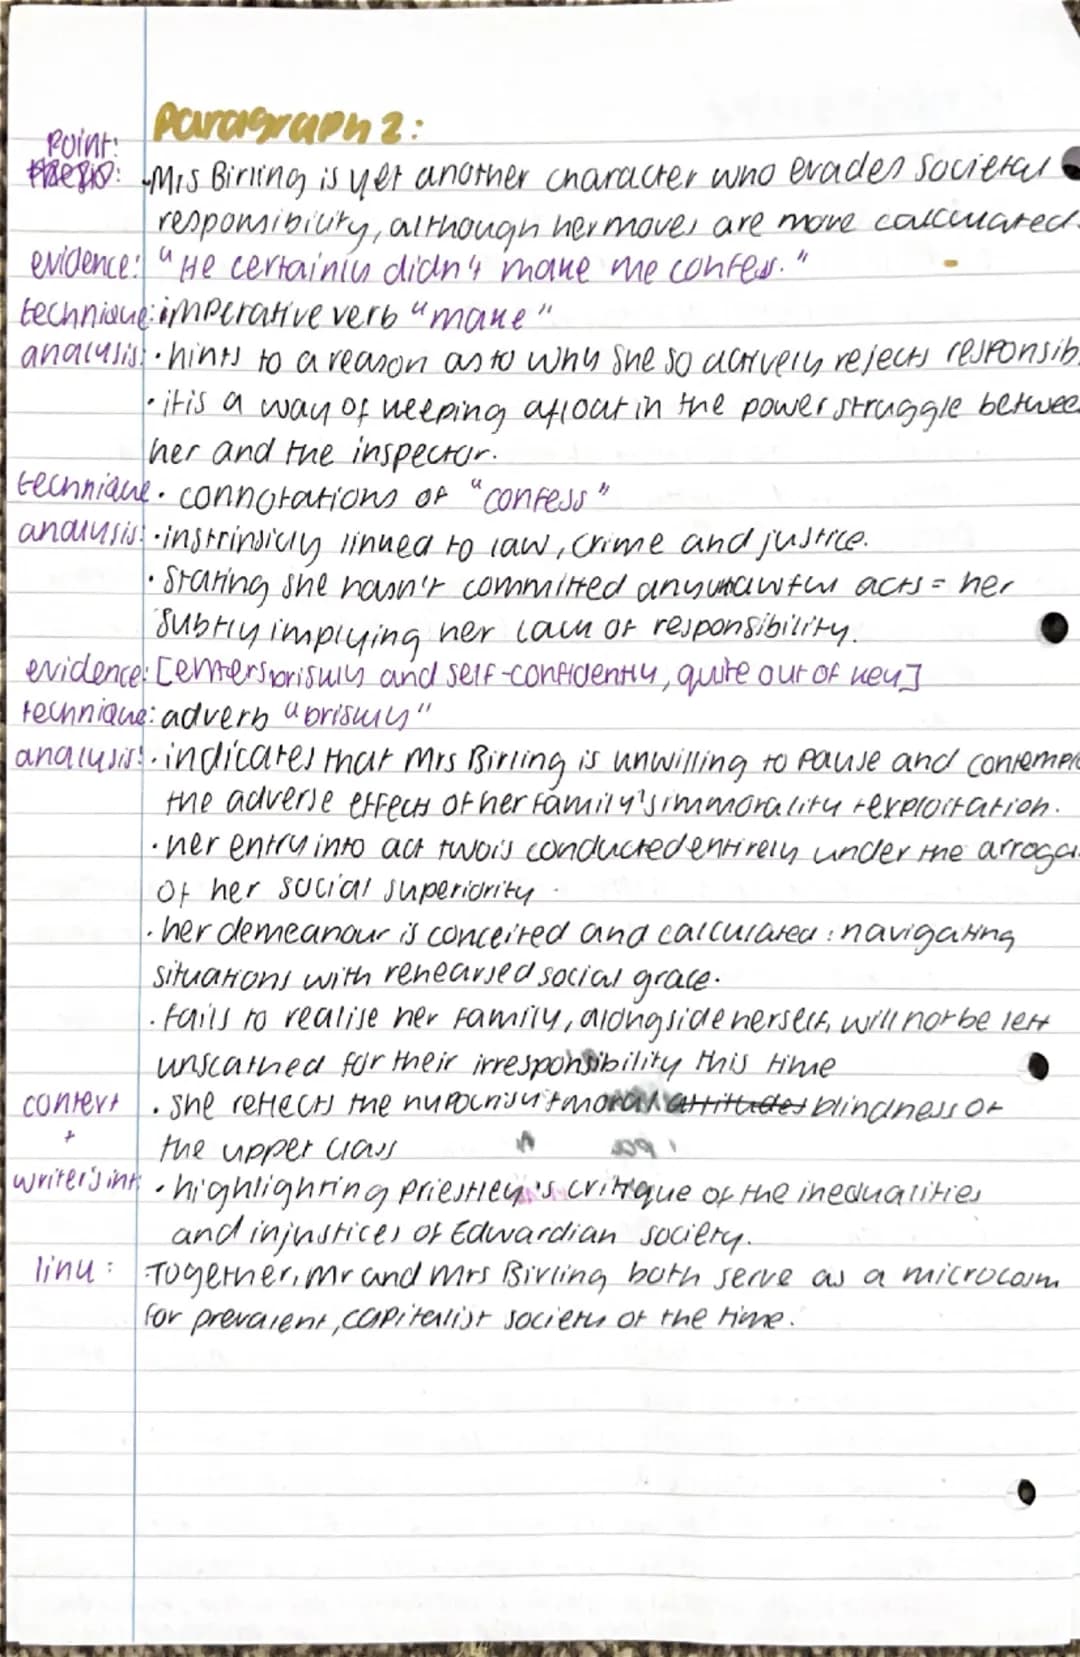 Paragraph 2:
Point:
-Mrs Birling is yet another character who evades societal
responsibility, although her moves are more calculated.
evidence: "He certainly didn't make me confess."
technique: imperative verb "make"
analysis: • hints to a reason as to why she so actively rejects responsib
• it is a way of keeping afloat in the power struggle betwee
her and the inspector.
technique • connotations of "confess"
analysis: • instrinsicly linked to law, crime and justice.
• Stating she hasn't committed any unlawful acts = her
subtly implying her lack of responsibility.
evidence: [enters briskly and self-confidently, quite out of key]
technique: adverb "briskly"
analysis: • indicates that Mrs Birling is unwilling to pause and contempl
the adverse effects of her family's immorality + exploitation.
• her entry into act two is conducted entirely under the arroga
of her social superiority.
• her demeanour is conceited and calculated: navigating
situations with rehearsed social grace.
• fails to realise her family, alongside herself, will not be left
unscathed for their irresponsibility this time
context • she reflects the hypocrisy + moral attitudes blindness of
+ the upper class
writer's int • highlighting Priestley's critique of the inequalities
and injustices of Edwardian society.
link: Together, Mr and Mrs Birling both serve as a microcosm
for prevalent, capitalist society of the time.